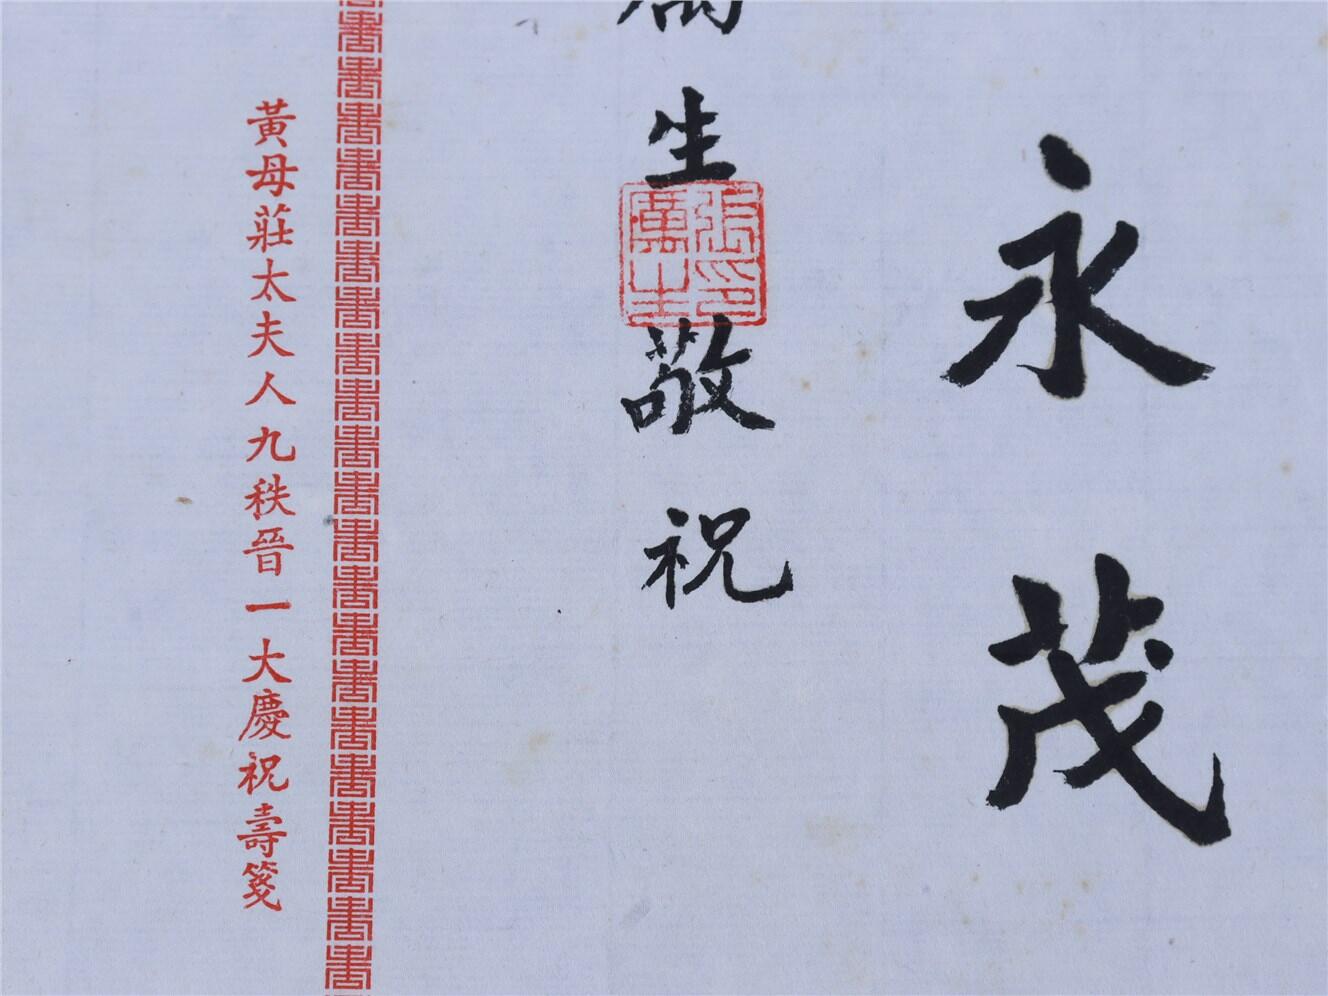 永茂
生敬祝
張萬生印
黃母莊太夫人九秩晉一大慶祝壽箋